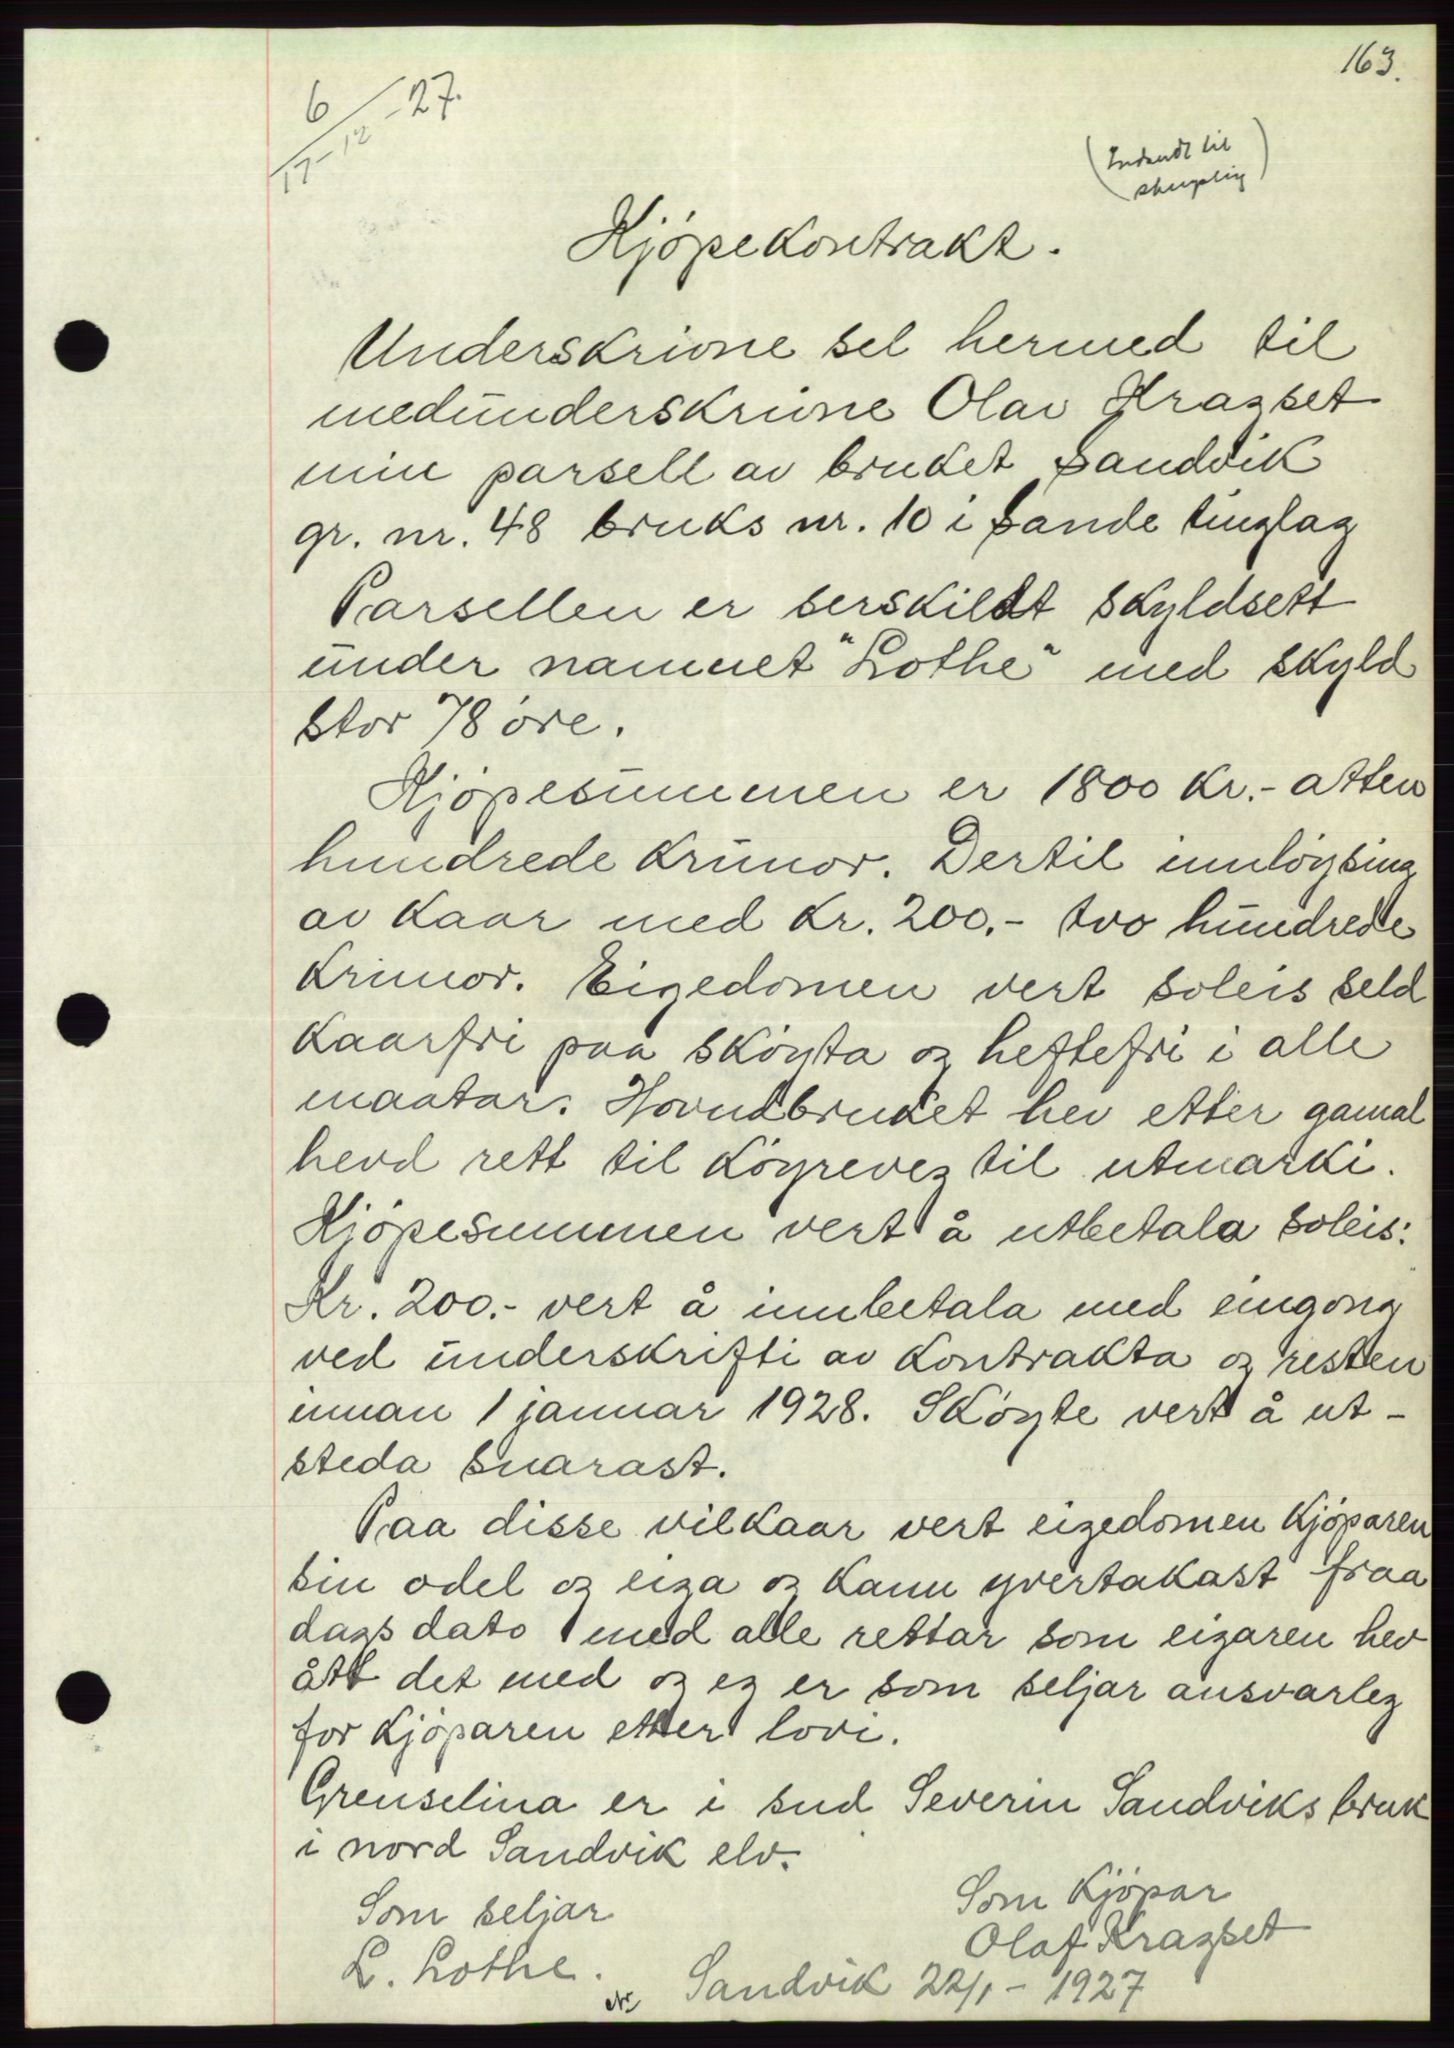 163.
6/17-12-27.
(Indsendt til
stempling)
Kjöpekontrakt.
Underskrivne sel hermed til
medunderskrivne Olav Kragset
min parsell av bruket Sandvik
gr. nr. 48 bruks nr. 10 i Sande tinglag
Parsellen er serskildt skyldsett
under namnet "Lothe" med skyld
stor 78 öre.
Kjöpesummen er 1800 kr.- atten
hundrede krunor. Dertil innlöysing
av kaar med kr. 200.- tvo hundrede
krunor. Eigedomen vert soleis seld
kaarfri paa sköyta og heftefri i alle
maatar. Hovudbruket hev etter gamal
hevd rett til köyreveg til utmarki.
Kjöpesummen vert å utbetala soleis:
Kr. 200.- vert å innbetala med eingong
ved underskrifti av kontrakta og resten
innan 1 januar 1928. Sköyte vert å ut-
steda snarast.
Paa disse vilkaar vert eigedomen kjöparen
sin odel og eiga og kann yvertakast fraa
dags dato med alle rettar som eigaren hev
ått det med og eg er som seljar ansvarleg
for kjöparen etter lovi.
Grenselina er i sud Severin Sandviks bruk
i nord Sandvik elv.
Som seljar
L. Lothe.
Som kjöpar
Olaf Kragset
Sandvik 22/1 - 1927